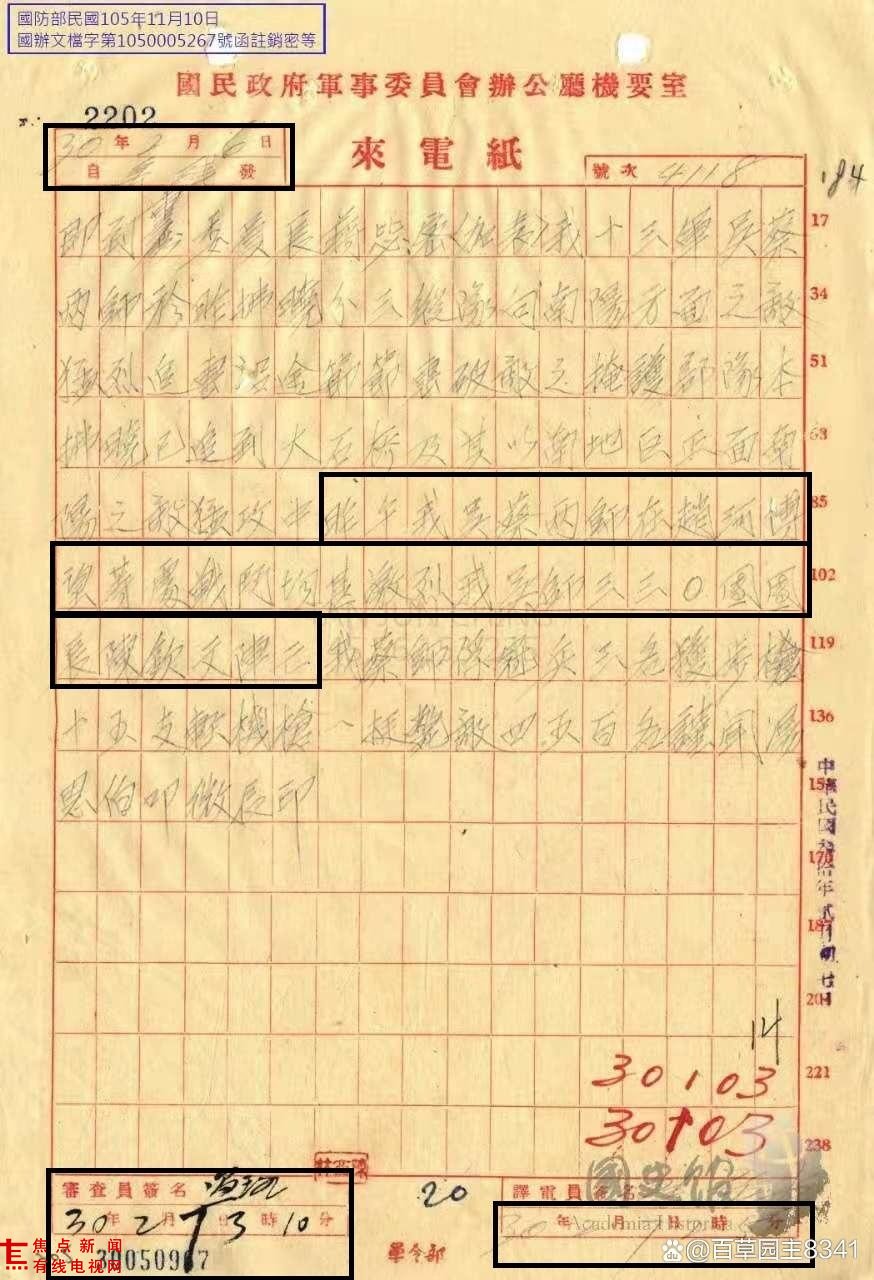 國防部民國105年11月10日
國辦文檔字第1050005267號函註銷密等
國民政府軍事委員會辦公廳機要室
2202
30年2月6日
來電紙
自 發
號次 4118
184
即到 委員長蔣 密(加表)我十三軍吳蔡
17
兩師於昨拂曉分三縱隊向南陽方面之敵
34
猛烈進擊沿途節節擊破敵之掩護部隊本
51
拂曉已進到大石橋及其以南地區正面南
陽之敵猛攻中昨午我吳蔡兩師在趙河
85
頭著戰鬥均甚激烈我吳師三三〇團團
102
長陳欽文陣亡我蔡師俘敵兵三名獲步槍
119
十五支輕機槍一挺斃敵四五百名謹聞湯
136
恩伯叩微辰印
170
187
中華民國叁拾年貳月
14
30103
221
30103
238
國史館
Academia Historica
審查員簽名
30年2月7日13時10分
20
譯電員簽名
30年 月7日 時 分
軍令部
焦点新闻
有线电视网
@百草园主8341